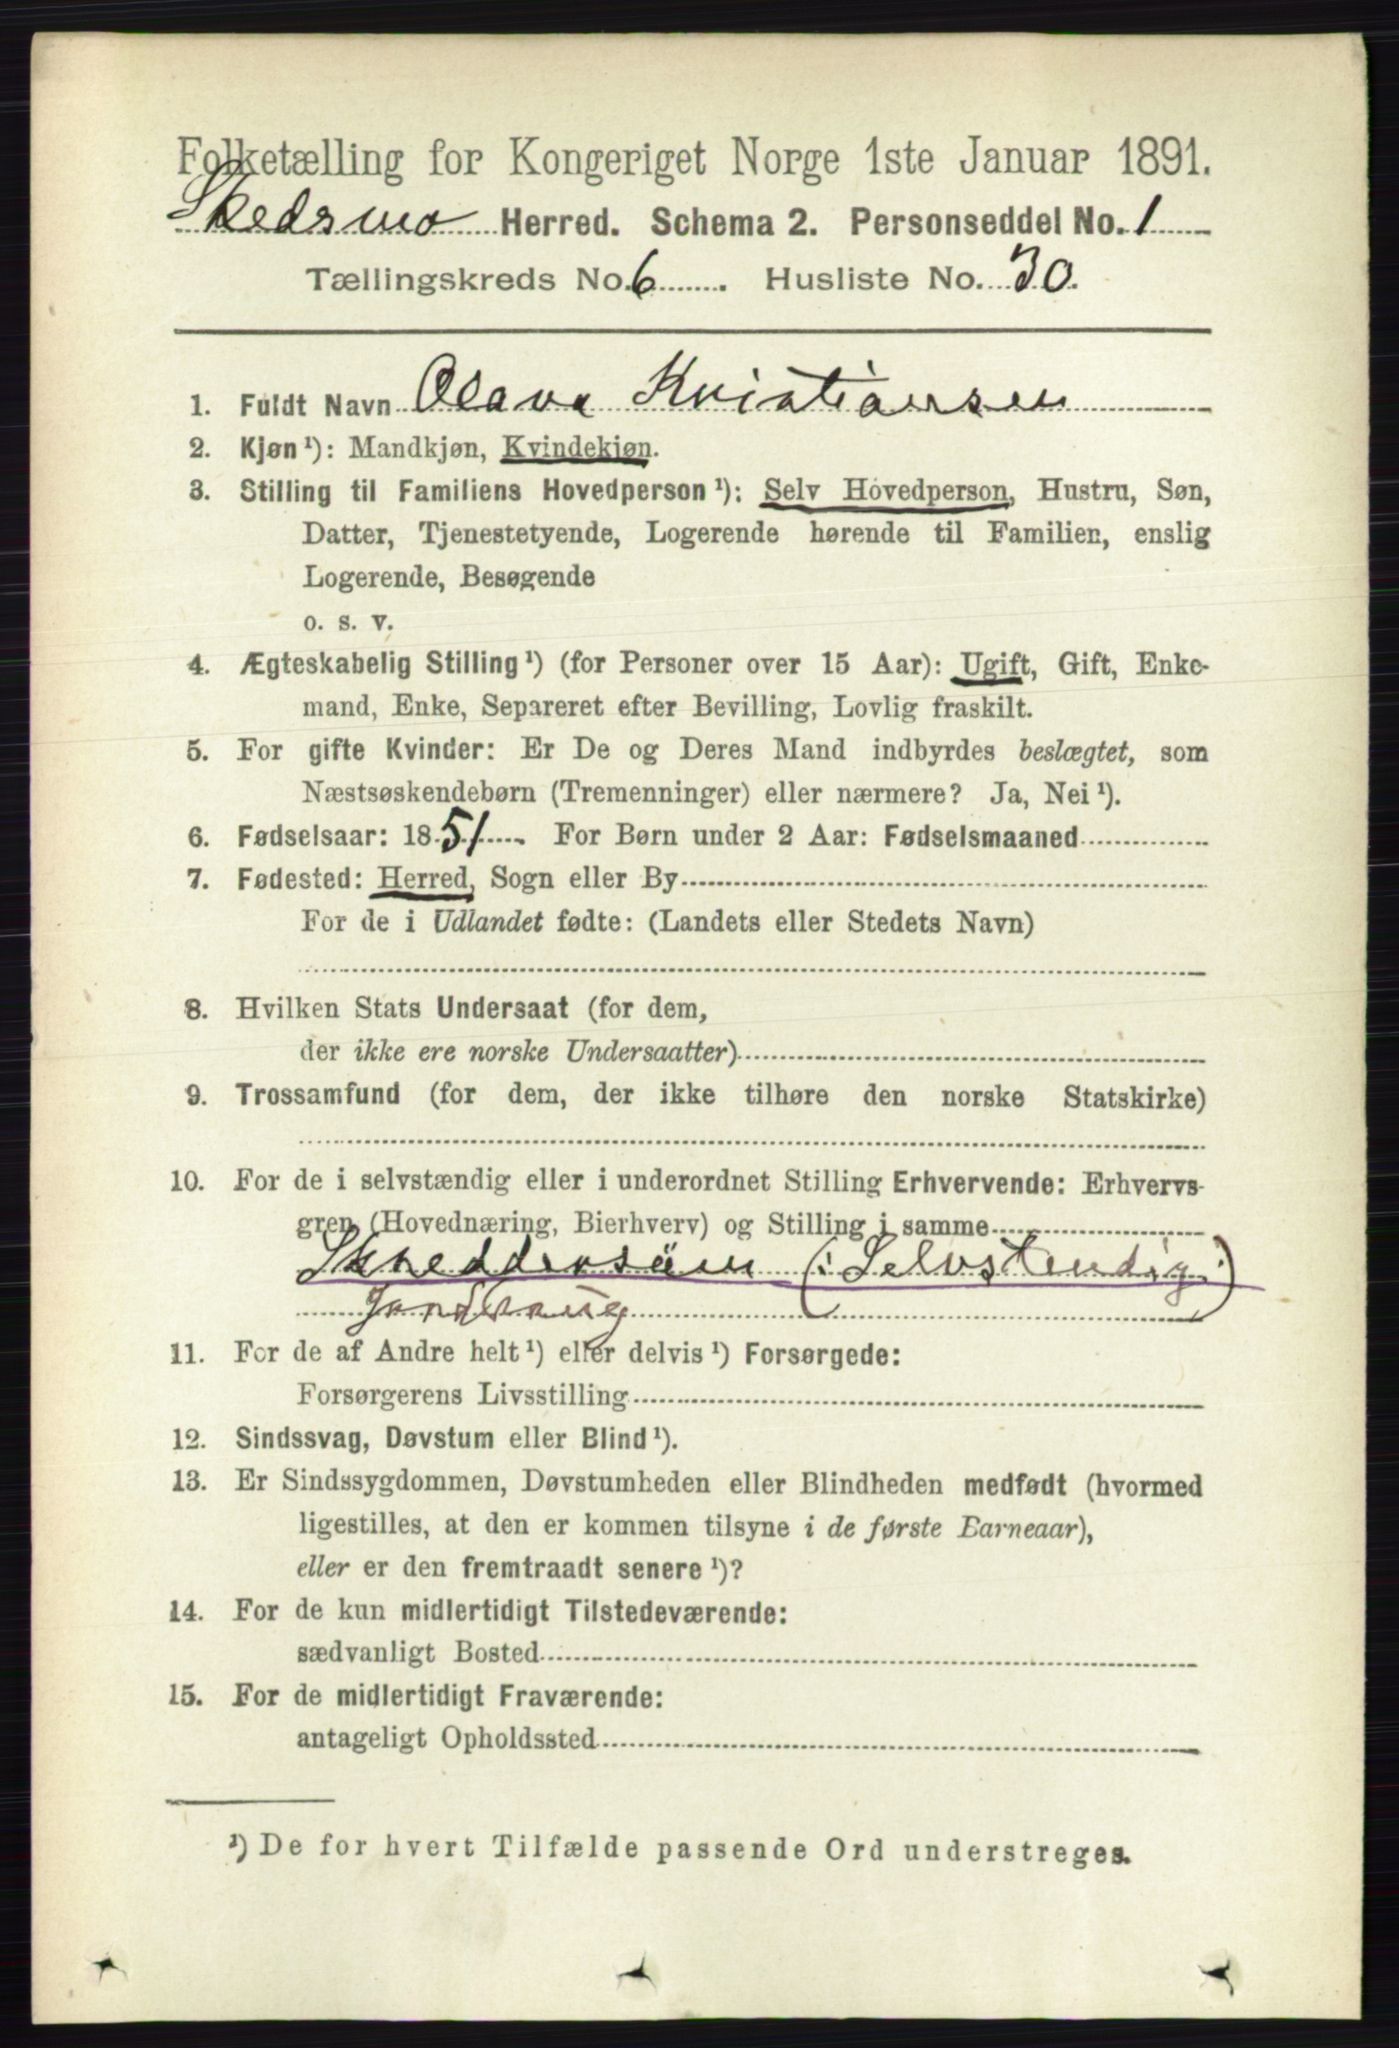 Folketælling for Kongeriget Norge 1ste Januar 1891.
Skedsmo Herred. Schema 2. Personseddel No. 1
Tællingskreds No. 6. Husliste No. 30.
1. Fuldt Navn Olava Kristiansen
2. Kjøn¹): Mandkjøn, Kvindekjøn.
3. Stilling til Familiens Hovedperson¹): Selv Hovedperson, Hustru, Søn,
Datter, Tjenestetyende, Logerende hørende til Familien, enslig
Logerende, Besøgende
o. s. v.
4. Ægteskabelig Stilling¹) (for Personer over 15 Aar): Ugift, Gift, Enke-
mand, Enke, Separeret efter Bevilling, Lovlig fraskilt.
5. For gifte Kvinder: Er De og Deres Mand indbyrdes beslægtet, som
Næstsøskendebørn (Tremenninger) eller nærmere? Ja, Nei¹).
6. Fødselsaar: 1851. For Børn under 2 Aar: Fødselsmaaned
7. Fødested: Herred, Sogn eller By
For de i Udlandet fødte: (Landets eller Stedets Navn)
8. Hvilken Stats Undersaat (for dem,
der ikke ere norske Undersaatter)
9. Trossamfund (for dem, der ikke tilhøre den norske Statskirke)
10. For de i selvstændig eller i underordnet Stilling Erhvervende: Erhvervs-
gren (Hovednæring, Bierhverv) og Stilling i samme
Skreddersöm (: Selvstendig :)
11. For de af Andre helt¹) eller delvis¹) Forsørgede:
Forsørgerens Livsstilling
12. Sindssvag, Døvstum eller Blind¹).
13. Er Sindssygdommen, Døvstumheden eller Blindheden medfødt (hvormed
ligestilles, at den er kommen tilsyne i de første Barneaar),
eller er den fremtraadt senere¹)?
14. For de kun midlertidigt Tilstedeværende:
sædvanligt Bosted
15. For de midlertidigt Fraværende:
antageligt Opholdssted
¹) De for hvert Tilfælde passende Ord understreges.